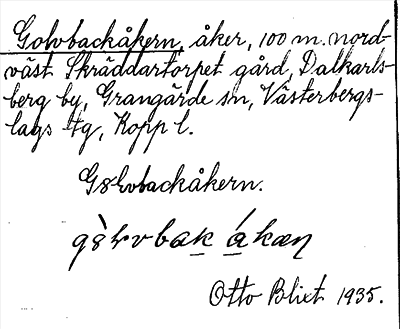 Golvbackåkern, åker, 100 m. nord-
väst Skräddartorpet gård, Dalkarls-
berg by, Grangärde sn, Västerbergs-
lags tg, Kopp l.
Gölvbackåkern.
Otto Blixt 1935.